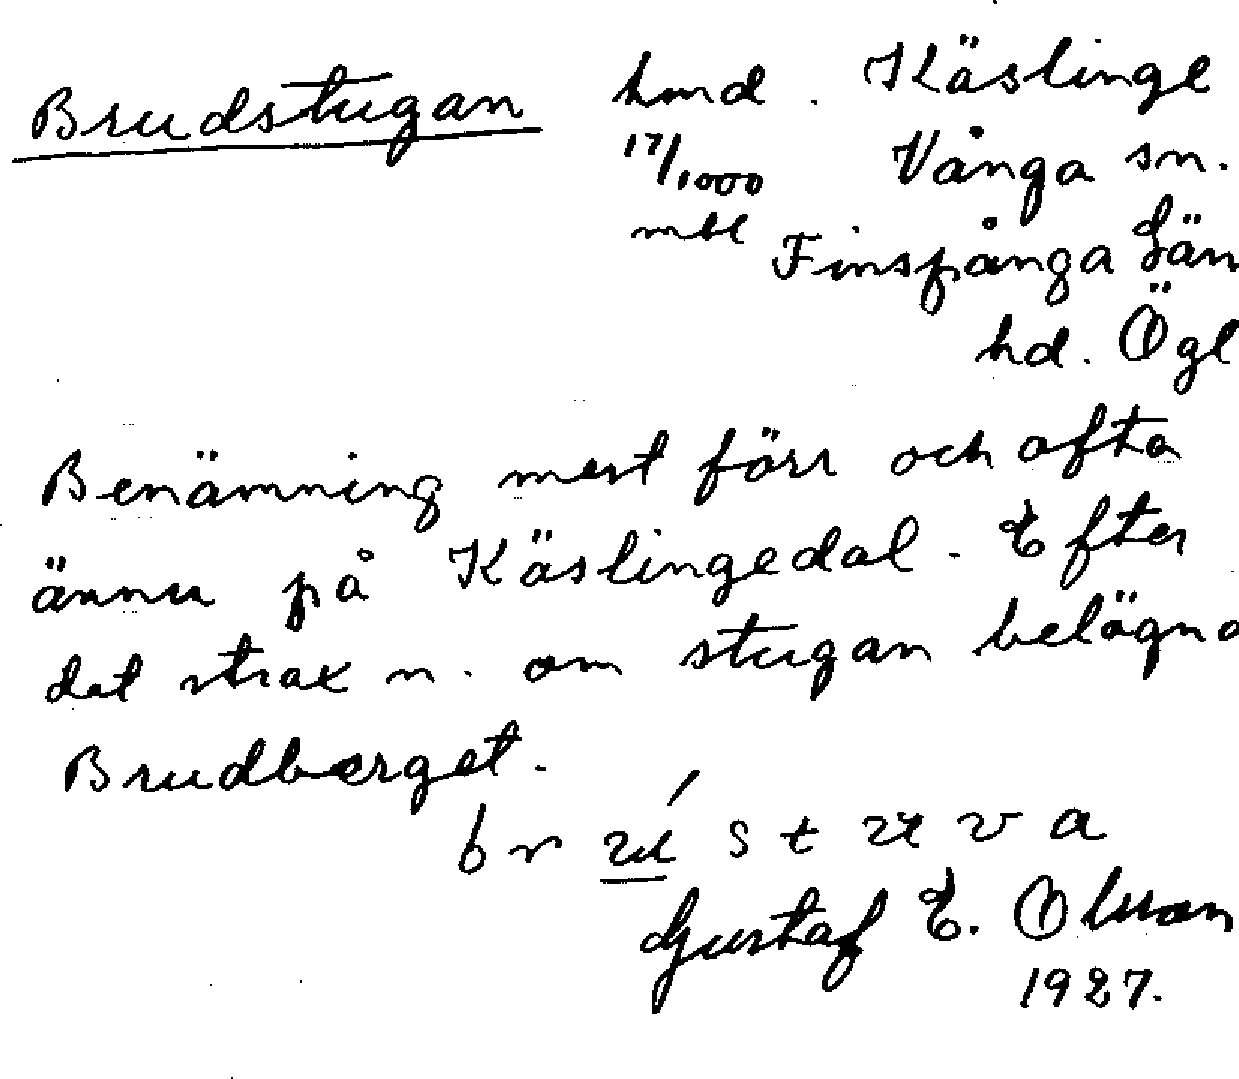 Brudstugan hmd. Käslinge
17/1000 Vånga sn.
mtl Finspånga Län
hd. Ögl
Benämning mest förr och ofta
ännu på Käslingedal. Efter
det strax n. om stugan belägna
Brudberget.
br stuva
Gustaf E. Olsson
1927.